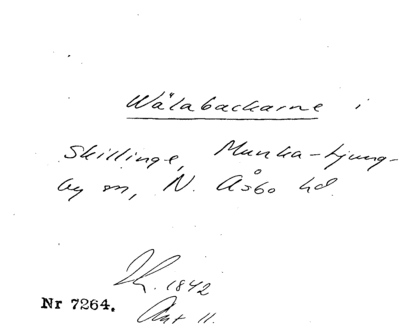 Wälabackarne i
Skillinge, Munka-Ljung-
by sn, N. Åsbo hd.
1842
Nr 7264. Akt 11.